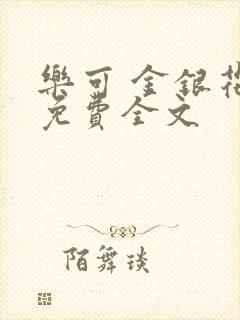 樂可 金銀花
免費全文
陌舞琰